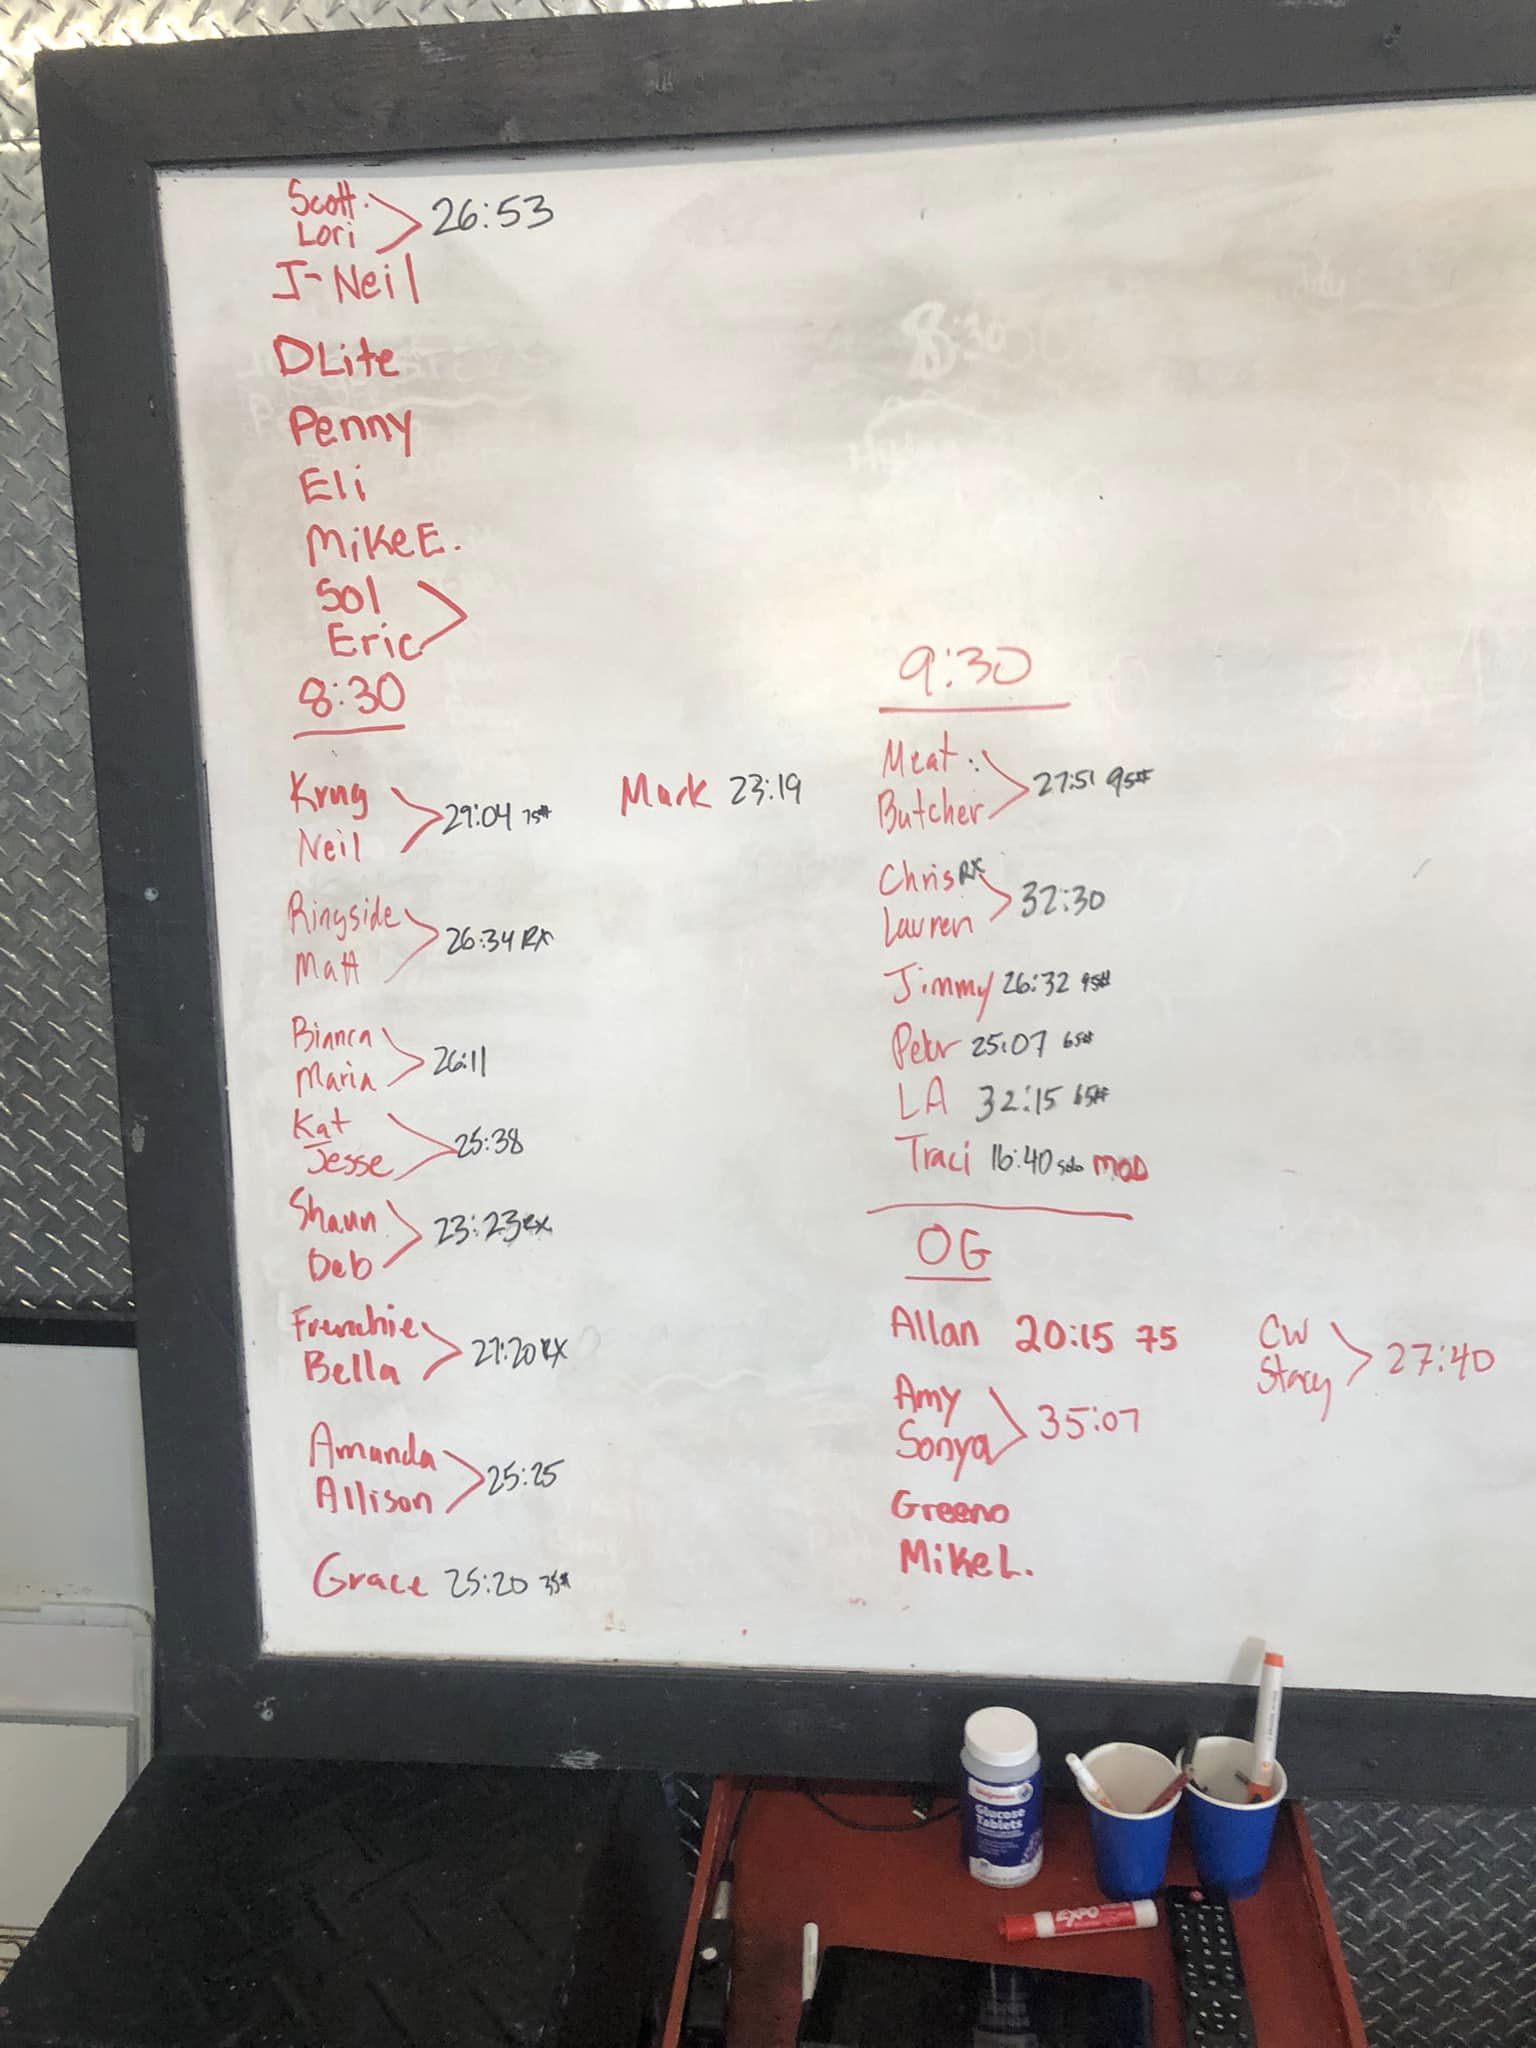 Scott
Lori
26:53
J-Neil
DLite
Penny
Eli
Mike E.
Sol
Eric
8:30
Krug
Neil
29:04 75#
Mark 23:19
Ringside
Matt
26:34 RX
Bianca
Maria
26:11
Kat
Jesse
25:38
Shaun
Deb
23:23 RX
Frenchie
Bella
27:20 RX
Amanda
Allison
25:25
Grace 25:20 35#
9:30
Meat
Butcher
27:51 95#
Chris RX
Lauren
32:30
Jimmy 26:32 95#
Peter 25:07 65#
LA 32:15 65#
Traci 16:40 solo MOD
OG
Allan 20:15 75
Amy
Sonya
35:07
Greeno
Mike L.
CW
Stacy
27:40
8:30
Glucose
Tablets
EXPO